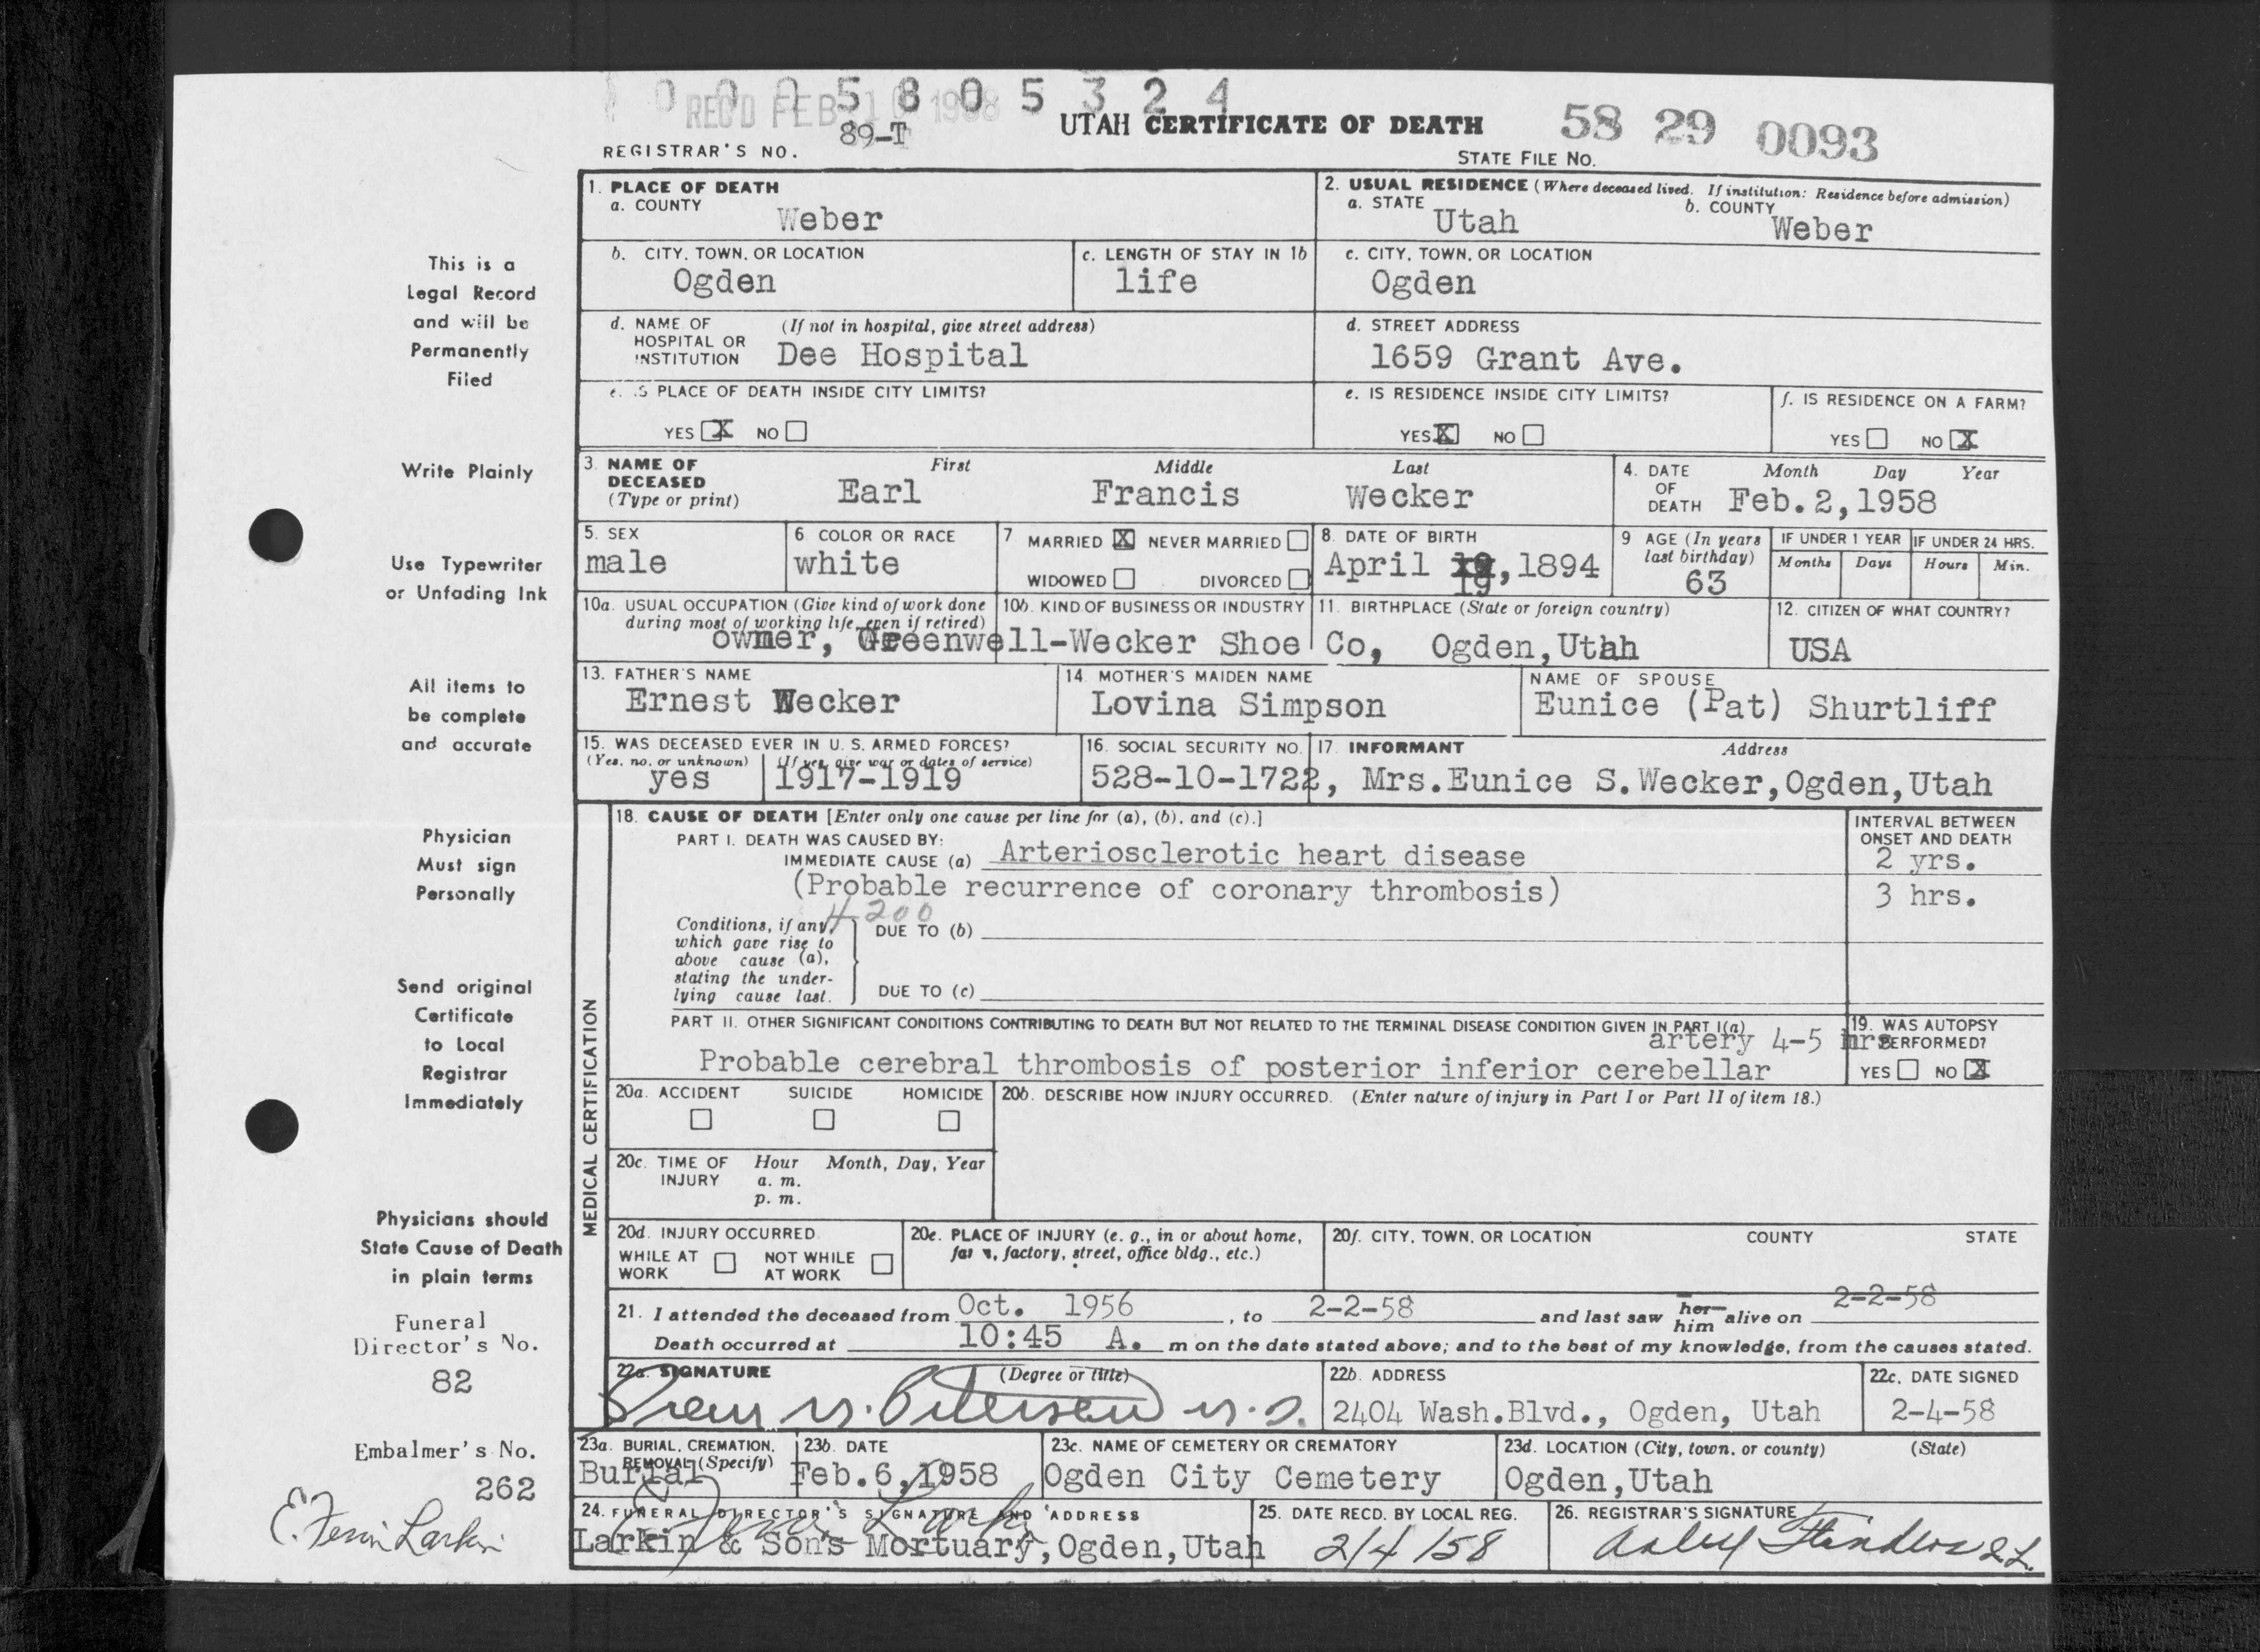 0 0 0 5 8 0 5 3 2 4
REC'D FEB 10 1958
89-T
UTAH CERTIFICATE OF DEATH
58 29 0093
REGISTRAR'S NO.
STATE FILE NO.
1. PLACE OF DEATH
a. COUNTY
Weber
2. USUAL RESIDENCE (Where deceased lived. If institution: Residence before admission)
a. STATE
Utah
b. COUNTY
Weber
b. CITY, TOWN, OR LOCATION
Ogden
c. LENGTH OF STAY IN 1b
life
c. CITY, TOWN, OR LOCATION
Ogden
d. NAME OF HOSPITAL OR INSTITUTION
(If not in hospital, give street address)
Dee Hospital
d. STREET ADDRESS
1659 Grant Ave.
e. IS PLACE OF DEATH INSIDE CITY LIMITS?
YES X NO
e. IS RESIDENCE INSIDE CITY LIMITS?
YES X NO
f. IS RESIDENCE ON A FARM?
YES NO X
3. NAME OF DECEASED (Type or print)
First Middle Last
Earl Francis Wecker
4. DATE OF DEATH
Month Day Year
Feb. 2, 1958
5. SEX
male
6 COLOR OR RACE
white
7 MARRIED X NEVER MARRIED
WIDOWED DIVORCED
8. DATE OF BIRTH
April 19, 1894
9 AGE (In years last birthday)
63
IF UNDER 1 YEAR
Months Days
IF UNDER 24 HRS.
Hours Min.
10a. USUAL OCCUPATION (Give kind of work done during most of working life, even if retired)
10b. KIND OF BUSINESS OR INDUSTRY
owner, Greenwell-Wecker Shoe Co,
11. BIRTHPLACE (State or foreign country)
Ogden, Utah
12. CITIZEN OF WHAT COUNTRY?
USA
13. FATHER'S NAME
Ernest Wecker
14. MOTHER'S MAIDEN NAME
Lovina Simpson
NAME OF SPOUSE
Eunice (Pat) Shurtliff
15. WAS DECEASED EVER IN U. S. ARMED FORCES?
(Yes, no, or unknown) (If yes, give war or dates of service)
yes 1917-1919
16. SOCIAL SECURITY NO.
528-10-1722,
17. INFORMANT Address
Mrs. Eunice S. Wecker, Ogden, Utah
MEDICAL CERTIFICATION
18. CAUSE OF DEATH [Enter only one cause per line for (a), (b), and (c).]
INTERVAL BETWEEN ONSET AND DEATH
PART I. DEATH WAS CAUSED BY:
IMMEDIATE CAUSE (a) Arteriosclerotic heart disease
2 yrs.
(Probable recurrence of coronary thrombosis)
3 hrs.
4200
Conditions, if any, which gave rise to above cause (a), stating the underlying cause last.
DUE TO (b)
DUE TO (c)
PART II. OTHER SIGNIFICANT CONDITIONS CONTRIBUTING TO DEATH BUT NOT RELATED TO THE TERMINAL DISEASE CONDITION GIVEN IN PART I(a)
artery 4-5 hrs
Probable cerebral thrombosis of posterior inferior cerebellar
19. WAS AUTOPSY PERFORMED?
YES NO X
20a. ACCIDENT SUICIDE HOMICIDE
20b. DESCRIBE HOW INJURY OCCURRED. (Enter nature of injury in Part I or Part II of item 18.)
20c. TIME OF INJURY
Hour Month, Day, Year
a. m.
p. m.
20d. INJURY OCCURRED
WHILE AT WORK NOT WHILE AT WORK
20e. PLACE OF INJURY (e. g., in or about home, farm, factory, street, office bldg., etc.)
20f. CITY, TOWN, OR LOCATION COUNTY STATE
21. I attended the deceased from Oct. 1956, to 2-2-58 and last saw her him alive on 2-2-58
Death occurred at 10:45 A. m on the date stated above; and to the best of my knowledge, from the causes stated.
22a. SIGNATURE (Degree or title)
Petersen M.D.
22b. ADDRESS
2404 Wash.Blvd., Ogden, Utah
22c. DATE SIGNED
2-4-58
23a. BURIAL, CREMATION, REMOVAL (Specify)
Burial
23b. DATE
Feb. 6, 1958
23c. NAME OF CEMETERY OR CREMATORY
Ogden City Cemetery
23d. LOCATION (City, town, or county) (State)
Ogden, Utah
24. FUNERAL DIRECTOR'S SIGNATURE AND ADDRESS
Larkin & Son's Mortuary, Ogden, Utah
25. DATE RECD. BY LOCAL REG.
2/4/58
26. REGISTRAR'S SIGNATURE
This is a
Legal Record
and will be
Permanently
Filed
Write Plainly
Use Typewriter
or Unfading Ink
All items to
be complete
and accurate
Physician
Must sign
Personally
Send original
Certificate
to Local
Registrar
Immediately
Physicians should
State Cause of Death
in plain terms
Funeral
Director's No.
82
Embalmer's No.
262
E. Fern Larkin